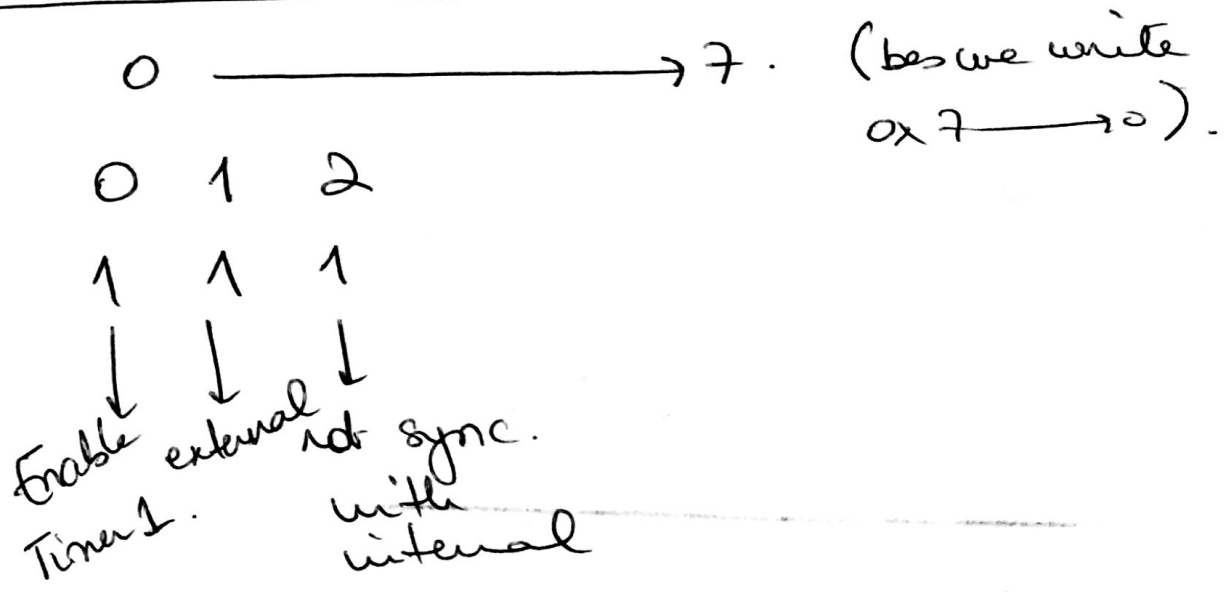 0 → 7. (bcs we write
0x7 → 0).
0 1 2
1 1 1
↓ ↓ ↓
Enable external not sync.
Timer1. with
internal